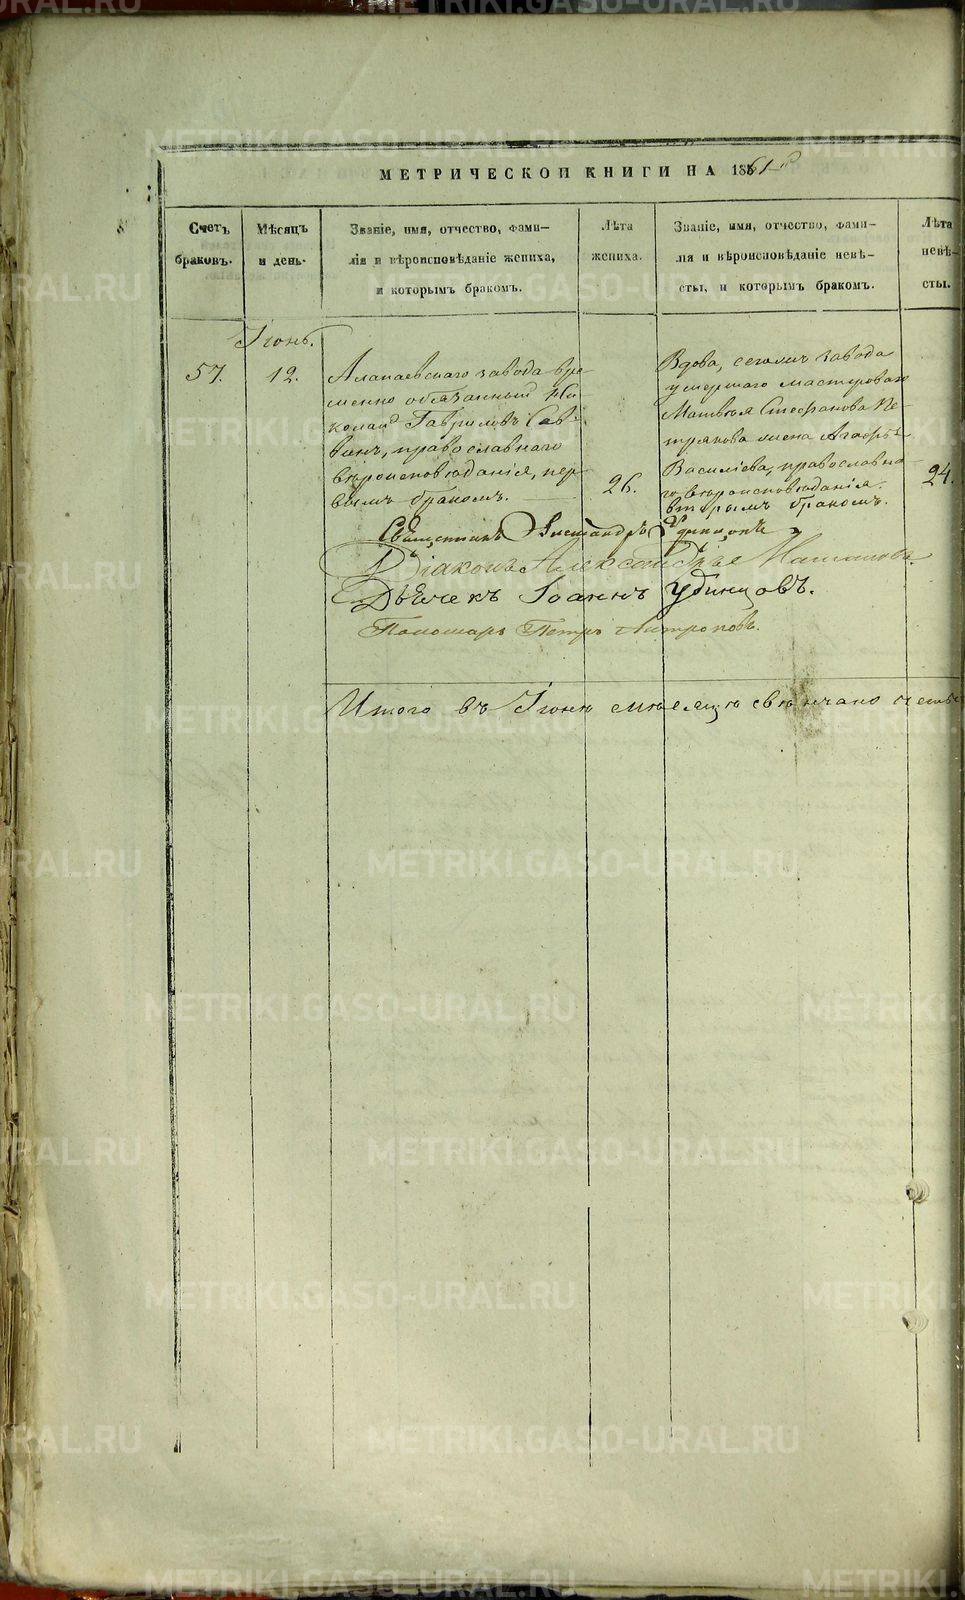 МЕТРИЧЕСКОЙ КНИГИ НА 1861
Счетъ браковъ.
Мѣсяцъ и день.
Званіе, имя, отчество, фамилія и вѣроисповѣданіе жениха, и которымъ бракомъ.
Лѣта жениха.
Званіе, имя, отчество, фамилія и вѣроисповѣданіе невѣсты, и которымъ бракомъ.
Лѣта невѣсты.
Іюнь.
57.
12.
Алапаевскаго завода вре-
менно обязанный Ни-
колай Гавриловъ Сав-
винъ, православнаго
вѣроисповѣданія, пер-
вымъ бракомъ.
26.
Вдова, сегожъ завода
умершаго мастероваго
Матвѣя Стефанова Пе-
трякова жена Агафья
Василіева, православна-
го вѣроисповѣданія.
вторымъ бракомъ.
24.
Священникъ Александръ Удинцовъ
Діаконъ Алексай
Дьячекъ Іоаннъ Удинцовъ.
Пономарь Петръ Антроповъ.
Итого въ Іюнѣ мѣсяцѣ свѣнчано
METRIKI.GASO-URAL.RU